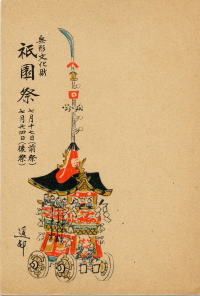 無形文化財
祇園祭
七月十七日(前祭)
七月廿四日(後祭)